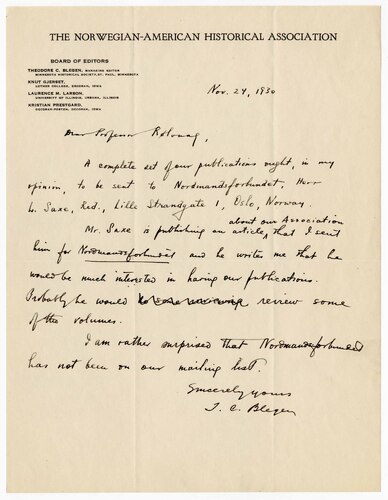 THE NORWEGIAN-AMERICAN HISTORICAL ASSOCIATION
BOARD OF EDITORS
THEODORE C. BLEGEN, MANAGING EDITOR
MINNESOTA HISTORICAL SOCIETY, ST. PAUL, MINNESOTA
KNUT GJERSET,
LUTHER COLLEGE, DECORAH, IOWA
LAURENCE M. LARSON,
UNIVERSITY OF ILLINOIS, URBANA, ILLINOIS
KRISTIAN PRESTGARD,
DECORAH-POSTEN, DECORAH, IOWA
Nov. 24, 1930
Dear Professor Rolvaag,
A complete set of our publications ought, in my
opinion, to be sent to Nordmandsforbundet, Herr
L. Saxe, Red., Lille Strandgate 1, Oslo, Norway.
about our Association
Mr. Saxe is publishing an article, that I sent
him for Nordmandsforbund and he writes me that he
would be much interested in having our publications.
Probably he would review some
of the volumes.
I am rather surprised that Nordmandsforbund
has not been on our mailing list.
Sincerely yours
T. C. Blegen